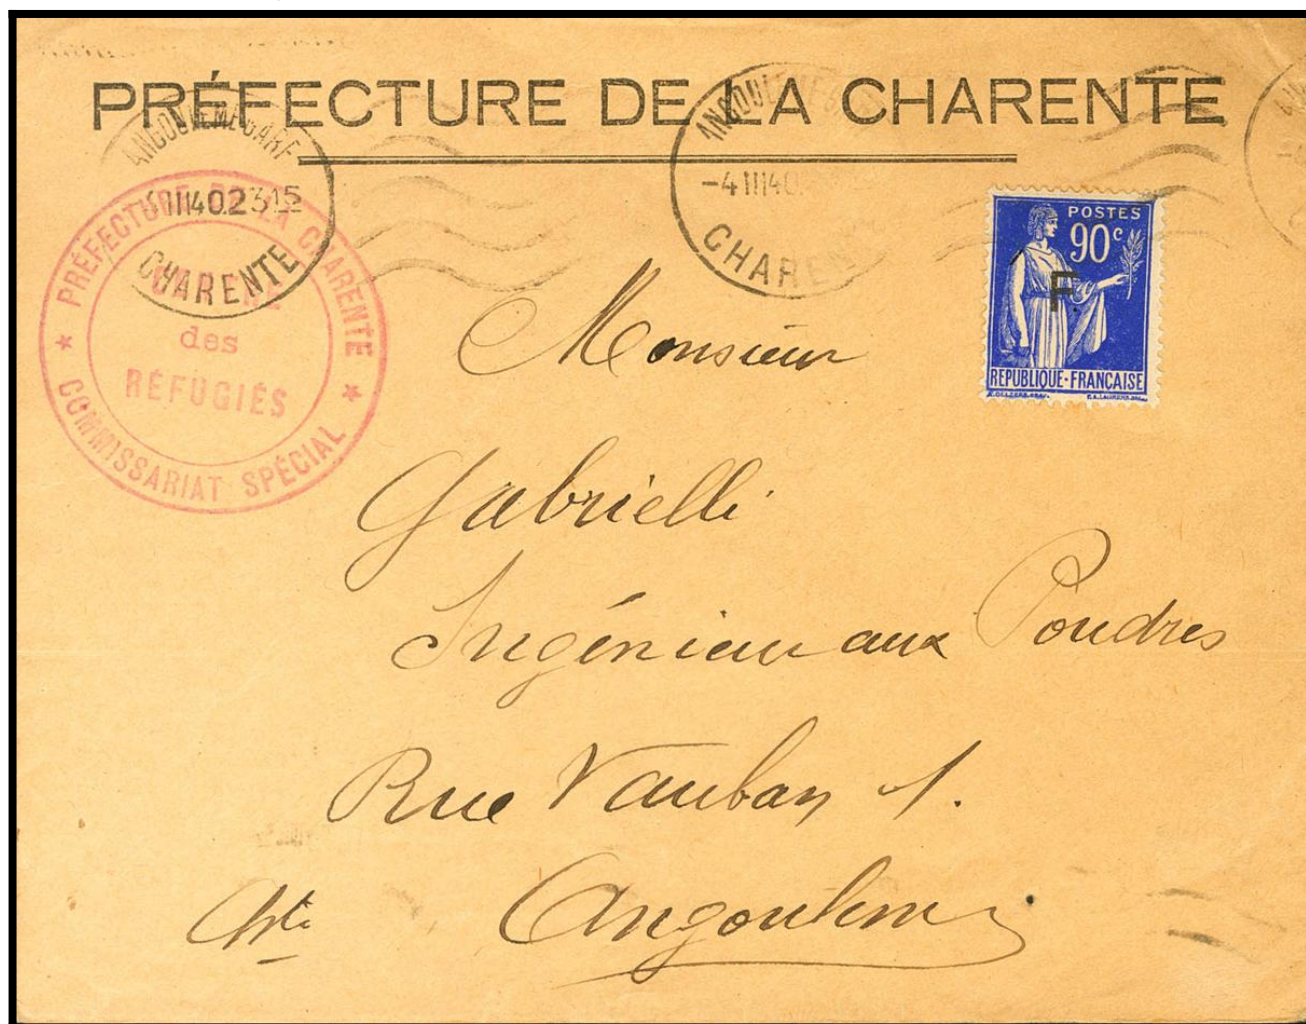 PRÉFECTURE DE LA CHARENTE
ANGOULEME GARE
4 III 40. 2315
CHARENTE
ANGOULEME
-4 III 40
CHARENTE
PRÉFECTURE DE LA CHARENTE
des
RÉFUGIÉS
COMMISSARIAT SPÉCIAL
POSTES
90c
F.
REPUBLIQUE·FRANCAISE
Monsieur
Gabrielli
Ingénieur aux Poudres
Rue Vauban 1.
Angoulême